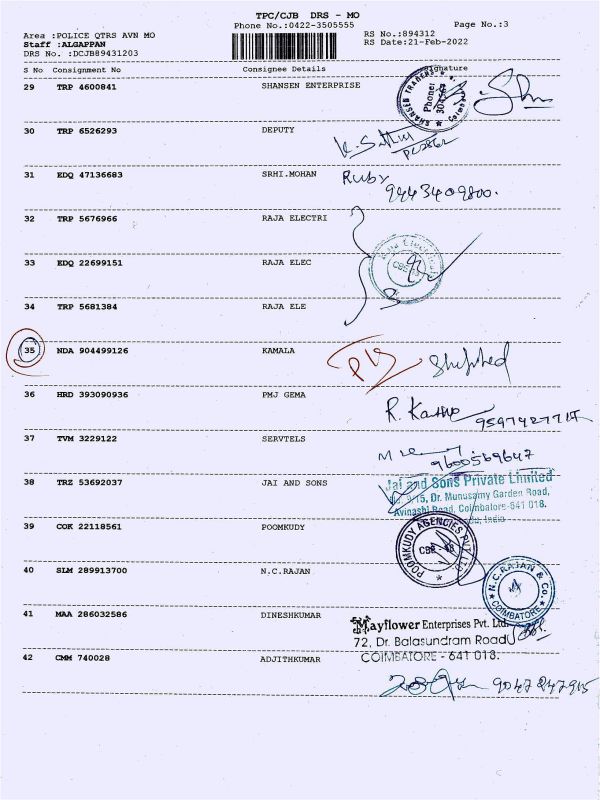 TPC/CJB DRS - MO
Phone No.:0422-3505555
Page No.:3
Area :POLICE QTRS AVN MO
Staff :ALGAPPAN
DRS No. :DCJB89431203
RS No.:894312
RS Date:21-Feb-2022
S No Consignment No Consignee Details Signature
29 TRP 4600841 SHANSEN ENTERPRISE
SHANSEN TRADERS
Phone:
30 TRP 6526293 DEPUTY
31 EDQ 47136683 SRHI.MOHAN Ruby
9443409800.
32 TRP 5676966 RAJA ELECTRI
33 EDQ 22699151 RAJA ELEC
34 TRP 5681384 RAJA ELE
35 NDA 904499126 KAMALA Shifted
36 HRD 393090936 PMJ GEMA
37 TVM 3229122 SERVTELS
9600569647
38 TRZ 53692037 JAI AND SONS
Jai and Sons Private Limited
Dr. Munusamy Garden Road,
Avinashi Road, Coimbatore-641 018.
India
39 COK 22118561 POOMKUDY
POOMKUDY AGENCIES PVT LTD
40 SLM 289913700 N.C.RAJAN
N.C.RAJAN & Co.
COIMBATORE
41 MAA 286032586 DINESHKUMAR
Mayflower Enterprises Pvt. Ltd.
72, Dr. Balasundram Road
COIMBATORE - 641 018.
42 CMM 740028 ADJITHKUMAR
9047247915